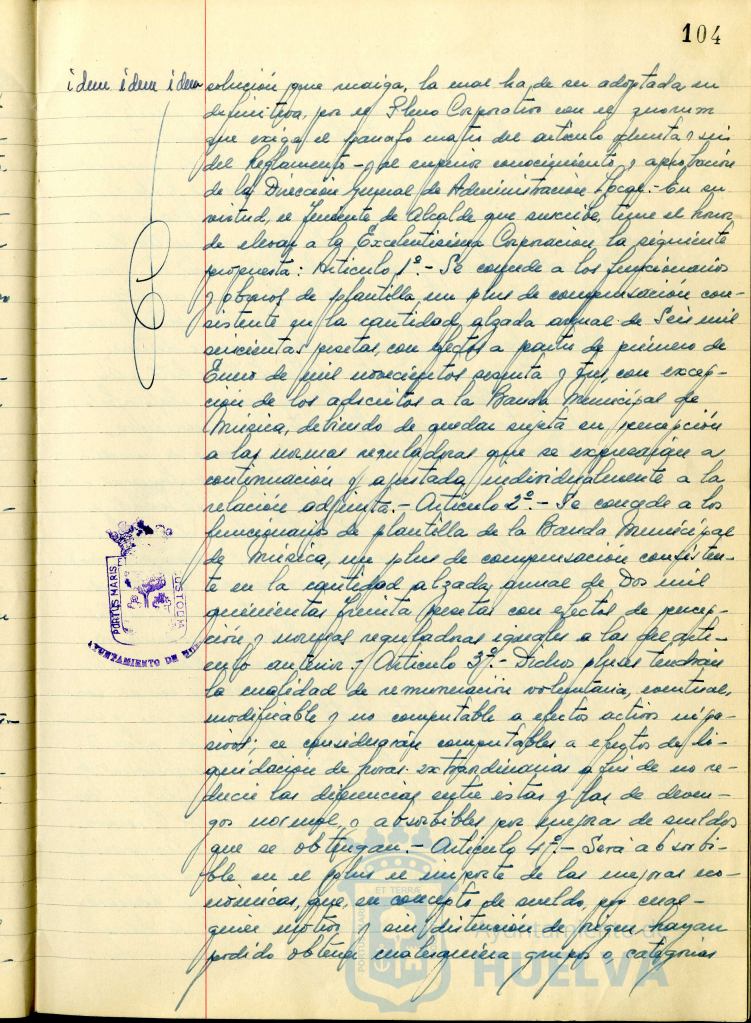 104
idem idem idem
solución que recaiga, la cual ha de ser adoptada, en
definitiva, por el Pleno Corporativo con el quorum
que exige el párrafo cuatro del artículo treinta y seis
del Reglamento - y al superior conocimiento y aprobación
de la Dirección General de Administración Local.- En su
virtud, el Teniente de Alcalde que suscribe, tiene el honor
de elevar a la Excelentísima Corporación la siguiente
propuesta: Artículo 1º.- Se concede a los funcionarios
y obreros de plantilla, un plus de compensación con-
sistente en la cantidad alzada anual de Seis mil
seiscientas pesetas, con efectos a partir de primero de
Enero de mil novecientos sesenta y tres, con excep-
ción de los adscritos a la Banda Municipal de
Música, debiendo de quedar sujeta su percepción
a las normas reguladoras que se expresarán a
continuación y ajustada individualmente a la
relación adjunta.- Artículo 2º.- Se concede a los
funcionarios de plantilla de la Banda Municipal
de Música, un plus de compensación consisten-
te en la cantidad alzada anual de Dos mil
quinientas treinta pesetas con efectos de percep-
ción y normas reguladoras iguales a las del artí-
culo anterior.- Artículo 3º.- Dichos pluses tendrán
la cualidad de remuneración voluntaria, eventual,
modificable y no computable a efectos activos ni pa-
sivos; se considerarán computables a efectos de li-
quidación de horas extraordinarias a fin de no re-
ducir las diferencias entre éstas y las de deven-
gos normal, y absorbibles por mejoras de sueldos
que se obtengan.- Artículo 4º.- Será absorbi-
ble en el plus el importe de las mejoras eco-
nómicas, que, en concepto de sueldo, por cual-
quier motivo y sin distinción de origen hayan
podido obtener cualesquiera grupos o categorías
PORTUS MARIS
CUSTODIA
AYUNTAMIENTO DE
ET TERRÆ
PORTUS MARIS
Ayuntamiento de
HUELVA